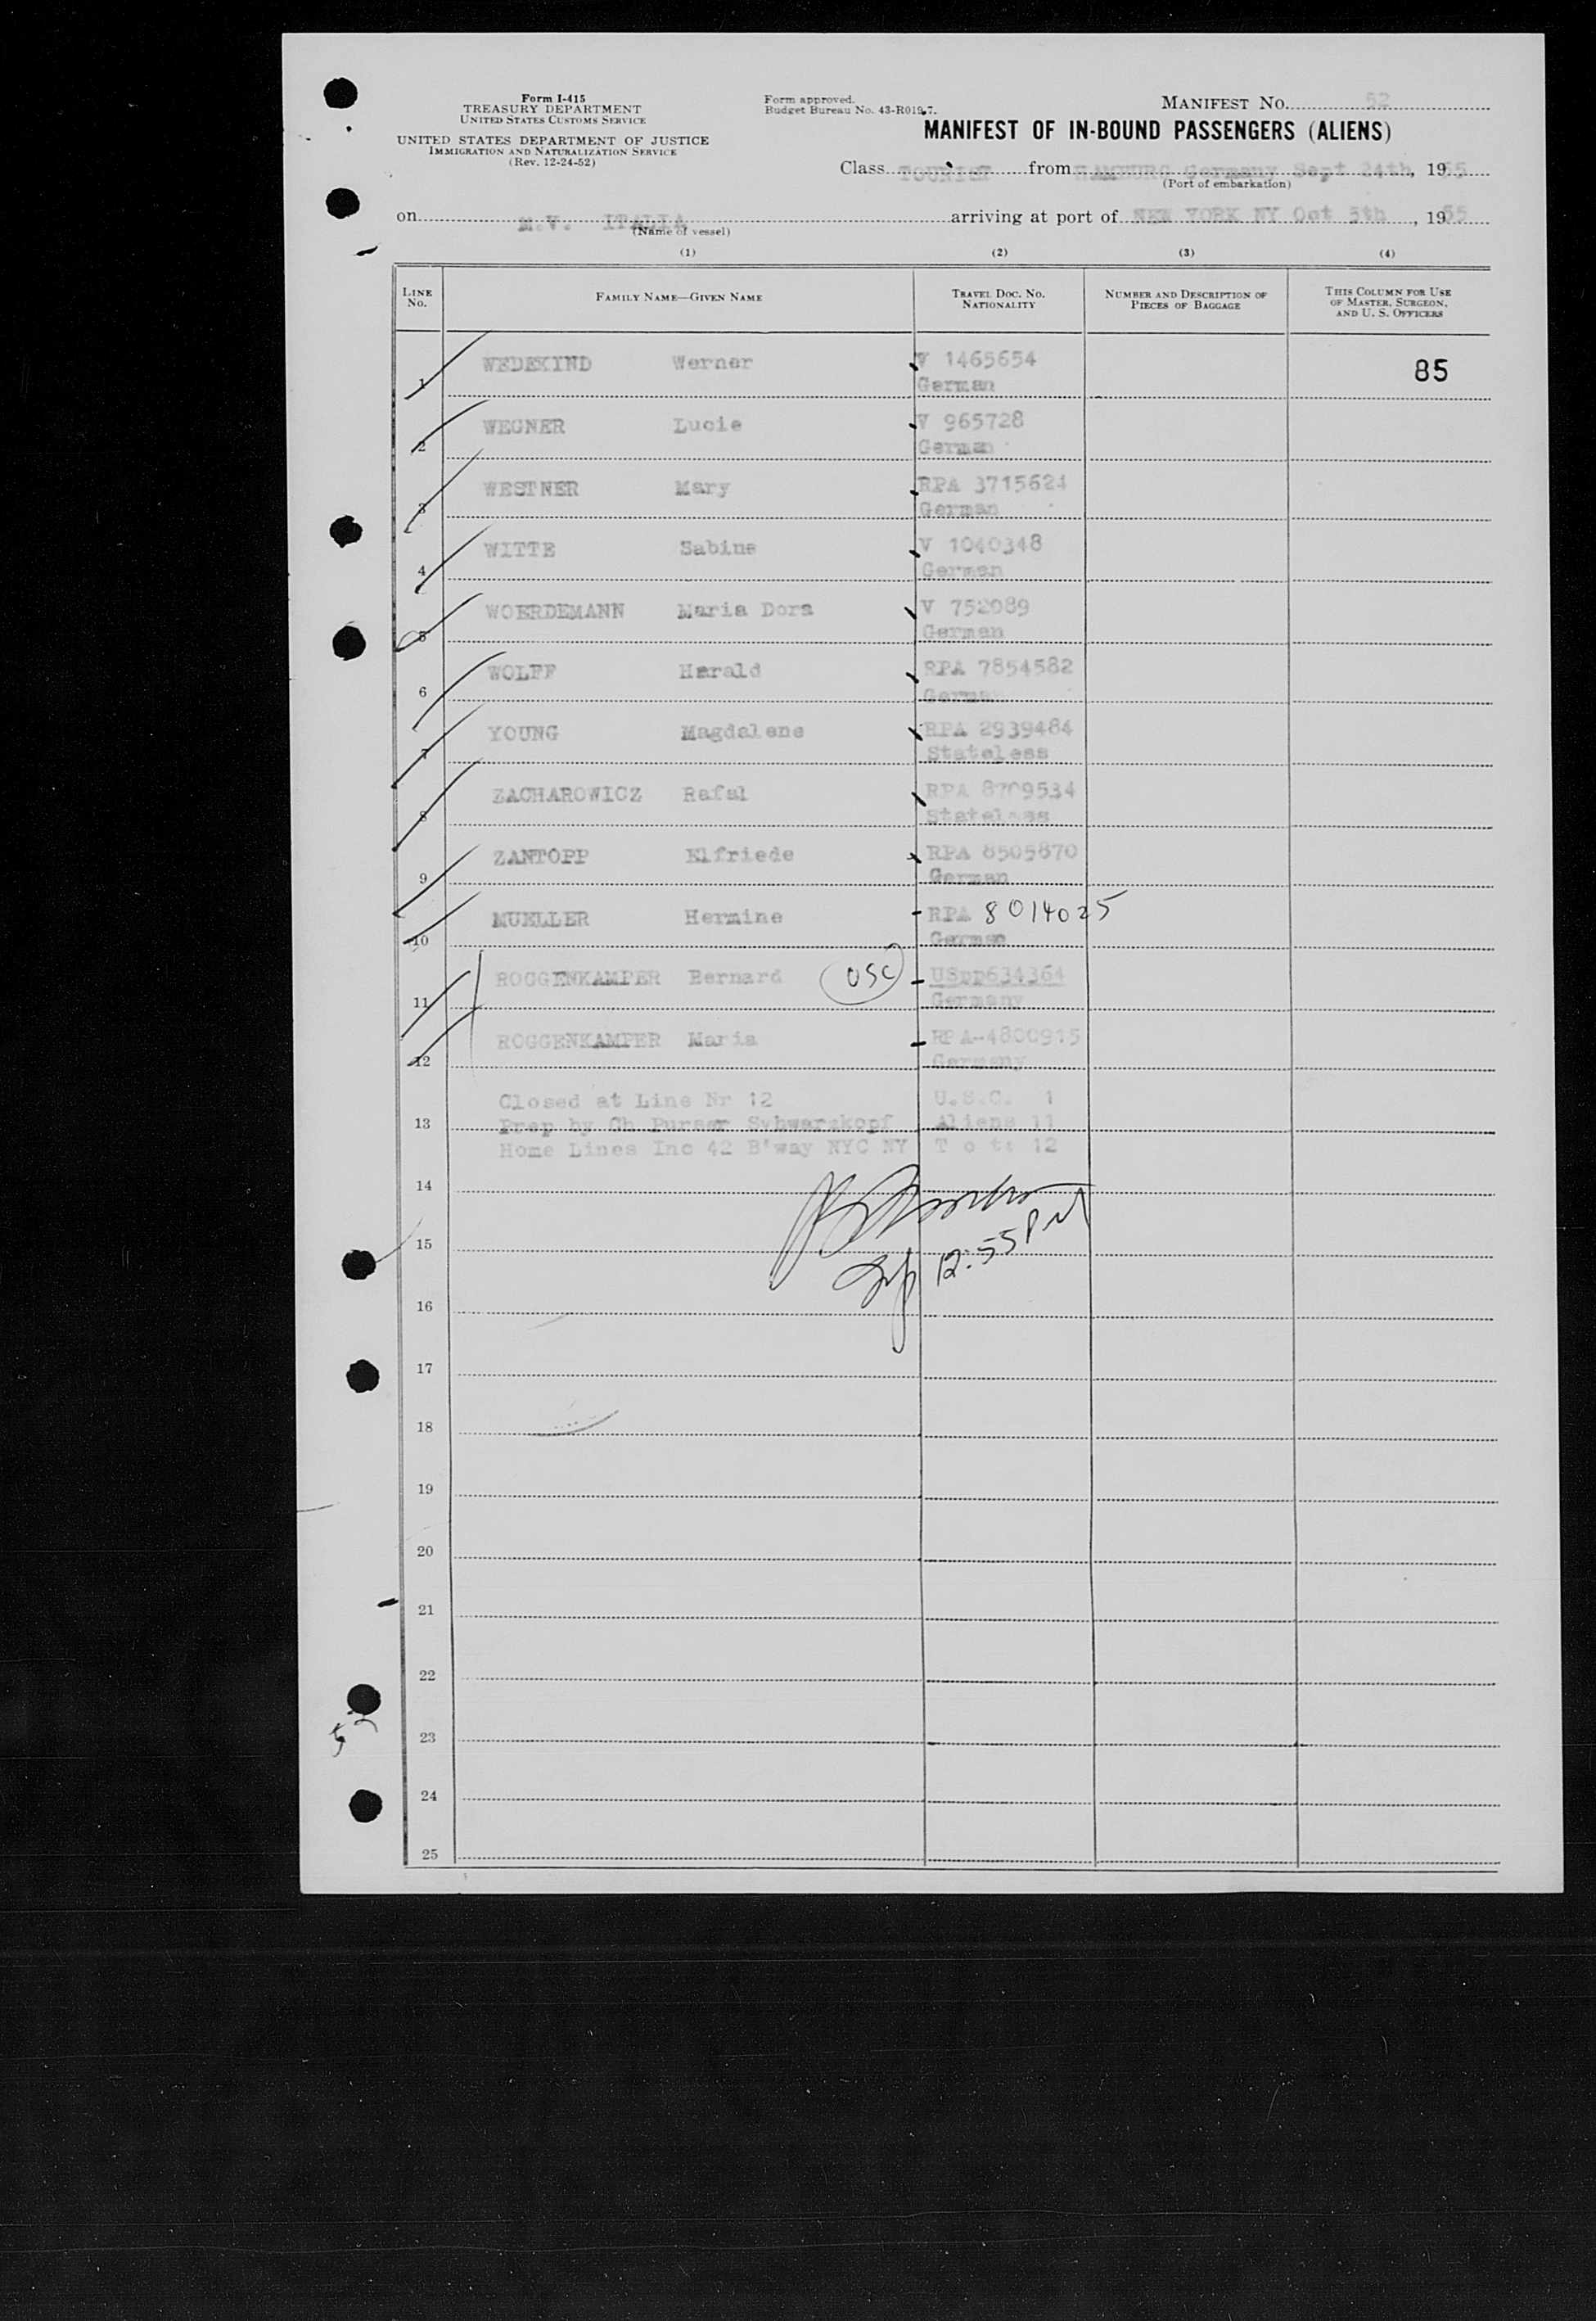 Form I-415
TREASURY DEPARTMENT
UNITED STATES CUSTOMS SERVICE
UNITED STATES DEPARTMENT OF JUSTICE
IMMIGRATION AND NATURALIZATION SERVICE
(Rev. 12-24-52)
Form approved.
Budget Bureau No. 43-R019.7.
MANIFEST NO. 52
MANIFEST OF IN-BOUND PASSENGERS (ALIENS)
Class TOURIST from HAMBURG Germany Sept 24th, 1955
(Port of embarkation)
on m.V. ITALIA arriving at port of NEW YORK NY Oct 5th, 1955
(Name of vessel)
(1) (2) (3) (4)
LINE NO. FAMILY NAME—GIVEN NAME TRAVEL DOC. NO. NATIONALITY NUMBER AND DESCRIPTION OF PIECES OF BAGGAGE THIS COLUMN FOR USE OF MASTER, SURGEON, AND U. S. OFFICERS
1 WEDEKIND Werner V 1465654 85
German
2 WEGNER Lucie V 965728
German
3 WESTNER Mary RPA 3715624
German
4 WITTE Sabine V 1040348
German
5 WOERDEMANN Maria Dora V 752089
German
6 WOLFF Harald RPA 7854582
German
7 YOUNG Magdalene RPA 2939484
Stateless
8 ZACHAROWICZ Rafal RPA 8709534
Stateless
9 ZANTOPP Elfriede RPA 8505870
German
10 MUELLER Hermine RPA 8014025
German
11 ROGGENKAMPER Bernard USC USpp634364
Germany
12 ROGGENKAMPER Maria RPA-4800915
Germany
Closed at Line Nr 12 U.S.C. 1
13 Prep by Ch Purser Svhwarzkopf Aliens 11
Home Lines Inc 42 B'way NYC NY T o t: 12
14
15
12:55 PM
16
17
18
19
20
21
22
23
24
25
52